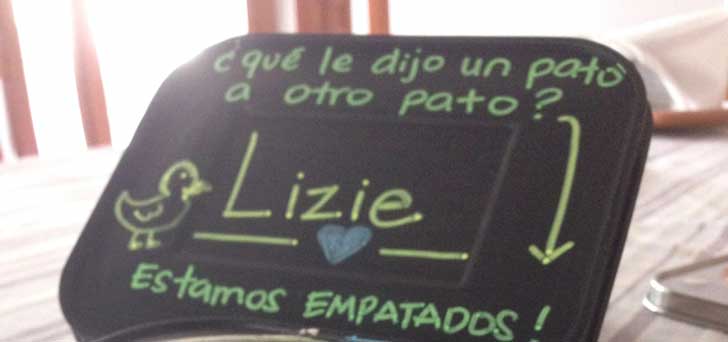 ¿qué le dijo un pato
a otro pato?
Lizie
Estamos EMPATADOS!